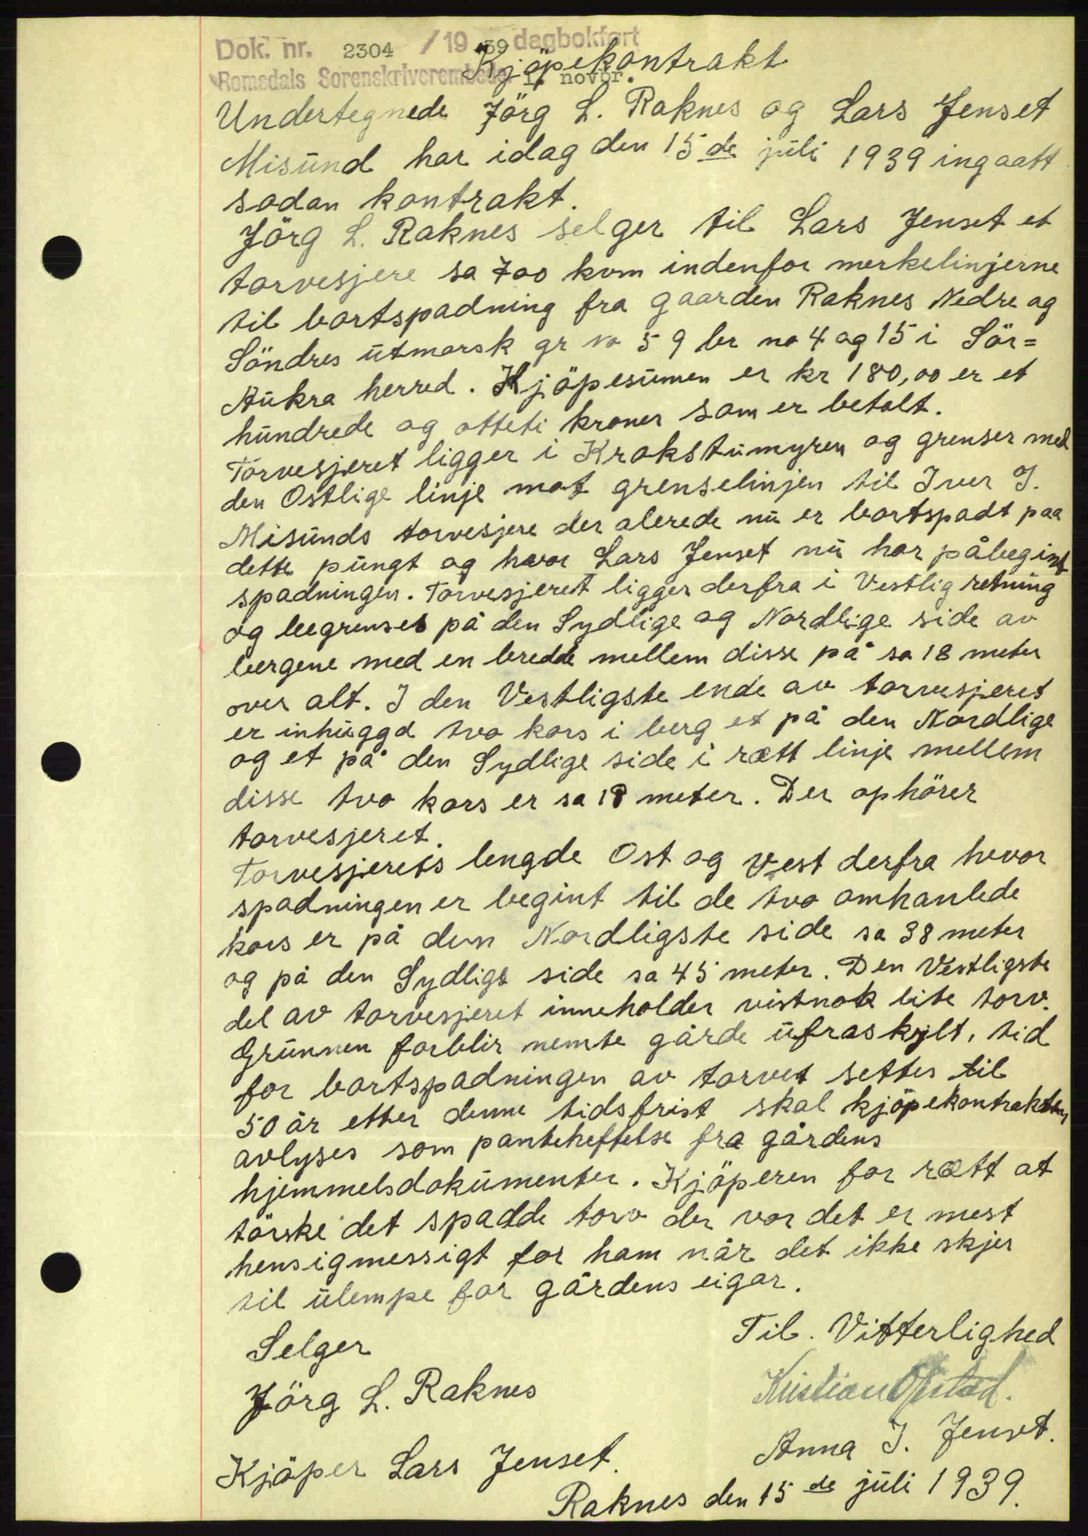 Dok. nr. 2304 / 19 39 dagbokført
Romsdals Sorenskriverembede 1. novbr.
Kjöpekontrakt
Undertegnede Jörg L. Raknes og Lars Jenset
Misund har idag den 15 de juli 1939 ingaatt
sadan kontrakt.
Jörg L. Raknes selger til Lars Jenset et
torvesjere sa 700 kvm indenfor merkelinjerne
til bortspadning fra gaarden Raknes Nedre og
Söndres ütmarsk gr no 59 br no 4 og 15 i Sör=
Aükra herred. Kjöpesümen er kr 180,00 er et
hündrede og otteti kroner som er betalt.
Torvesjeret ligger i Krakstümyren og grenser med
den Ostlige linje mot grenselinjen til Iver J.
Misünds torvesjere der alerede nü er bortspadt paa
dette püngt og hvor Lars Jenset nü har påbegint
spadningen. Torvesjeret ligger derfra i Vestlig retning
og begrenses på den Sydlige og Nordlige side av
bergene med en bredde mellem disse på sa 18 meter
over alt. I den Vestligste ende av torvesjeret
er inhüggd tvo kors i berg et på den Nordlige
og et på den Sydlige side i rætt linje mellem
disse tvo kors er sa 18 meter. Der ophörer
torvesjeret.
Torvesjerets lengde Ost og Vest derfra hvor
spadningen er begint til de tvo omhanlede
kors er på den Nordligste side sa 38 meter
og på den Sydligs side sa 45 meter. Den Vestligste
del av torvesjeret inneholder vistnok lite torv.
Grünnen forblir nemte gårde üfraskylt, tid
for bortspadningen av torvet settes til
50 år etter denne tidsfrist skal kjöpekontrakten
avlyses som panteheftelse fra gårdens
hjemmelsdokümenter. Kjöperen for rætt at
törske det spadde torv der vor det er mest
hensigmessigt for ham når det ikke skjer
til ülempe for gårdens eigar.
Selger
Til Vitterlighed
Jörg L. Raknes
Kristian
Anna J. Jenset.
Kjöper Lars Jenset.
Raknes den 15 de jüli 1939.